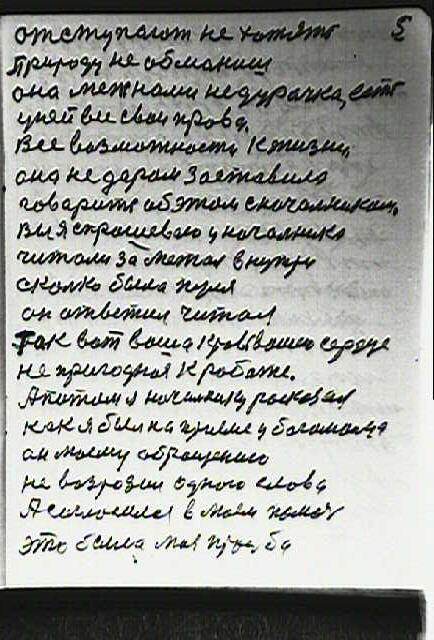 отступают не хотять 5
природу не обманиш
она межнами недурачка, есть
у ней все свои права.
Все возможности к жизни,
она не даром заставила
говарить об этом сночалником,
Вы я спрашеваю у началнико
читали заметал внутри
сколко была нуля
он ответил читал
Так вот ваша кров и вашею сердце
не пригодная к работе.
А потом я началнику расказал
как я был на приеме у богомолца
он моему обращению
не возрозил одного слова
А согласился
это была моя прозба